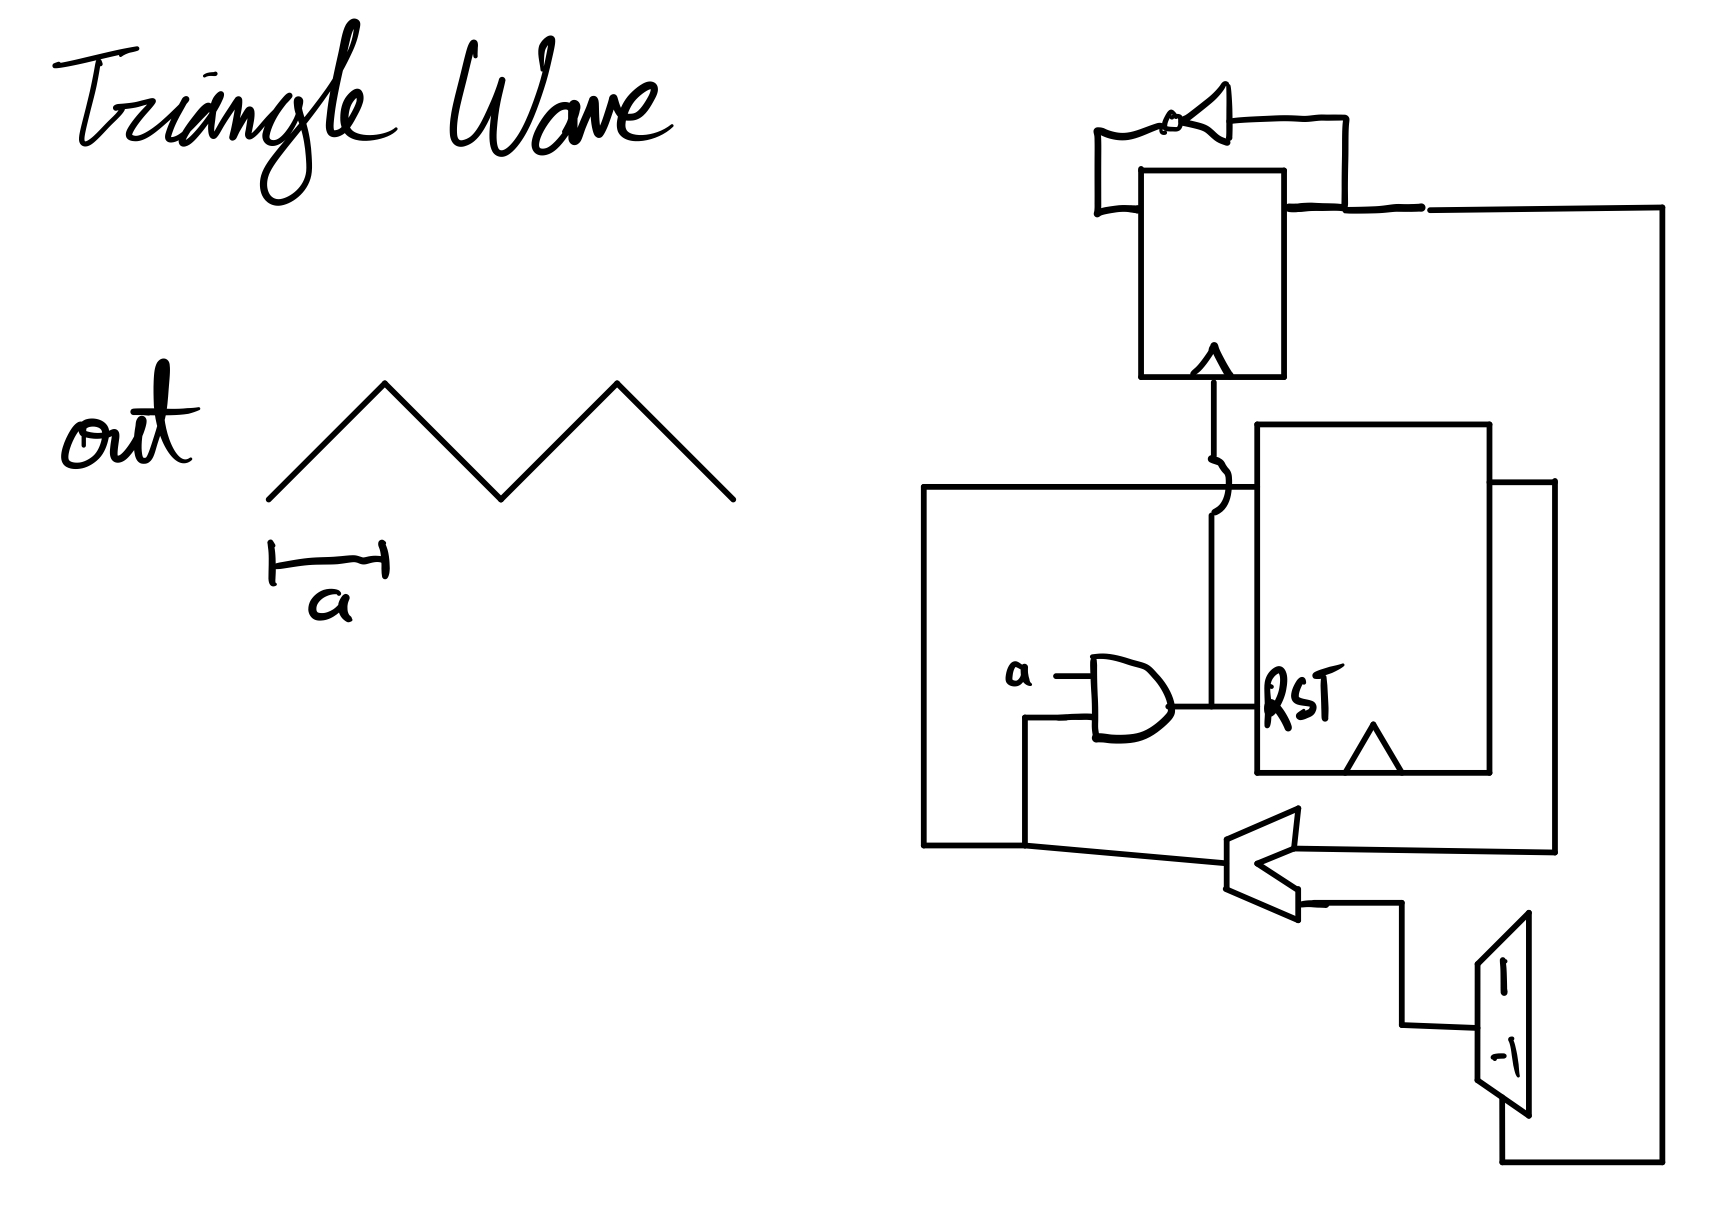 Triangle Wave
out
a
a
RST
1
-1